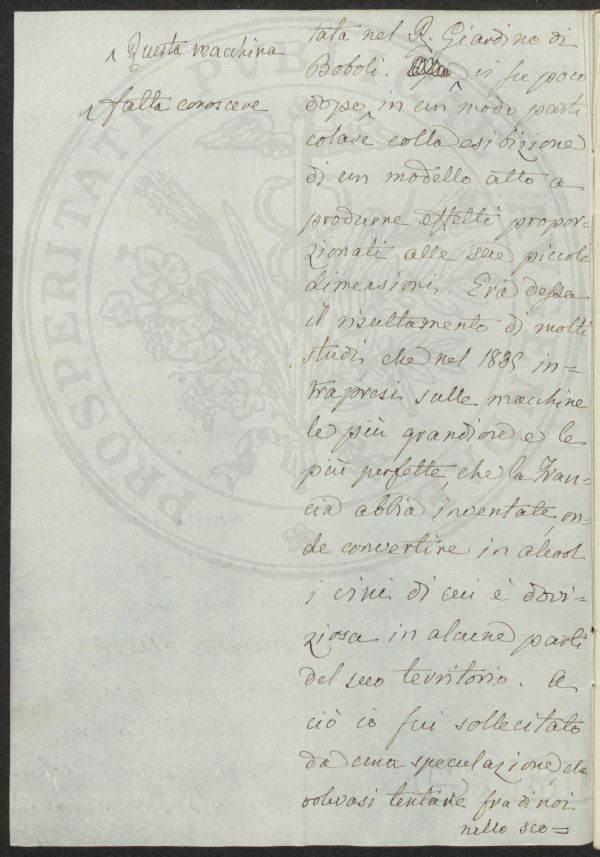 ^ Questa macchina
^ fatta conoscere
tata nel R. Giardino di
Boboli. ^ vi fu poco
dopo ^ in un modo parti
colare colla esibizione
di un modello atto a
produrre effetti propor=
zionati alle sue piccole
dimensioni. Era dessa
il risultamento di molti
studi, che nel 1835 in=
trapresi sulle macchine
le più grandiose e le
più perfette, che la Fran=
cia abbia inventate, on=
de convertire in alcool
i vini di cui è dovi=
ziosa in alcune parti
del suo territorio. A
ciò io fui sollecitato
da una speculazione, che
volevasi tentare fra di noi
nello sco=
PROSPERITATI PUBLICAE